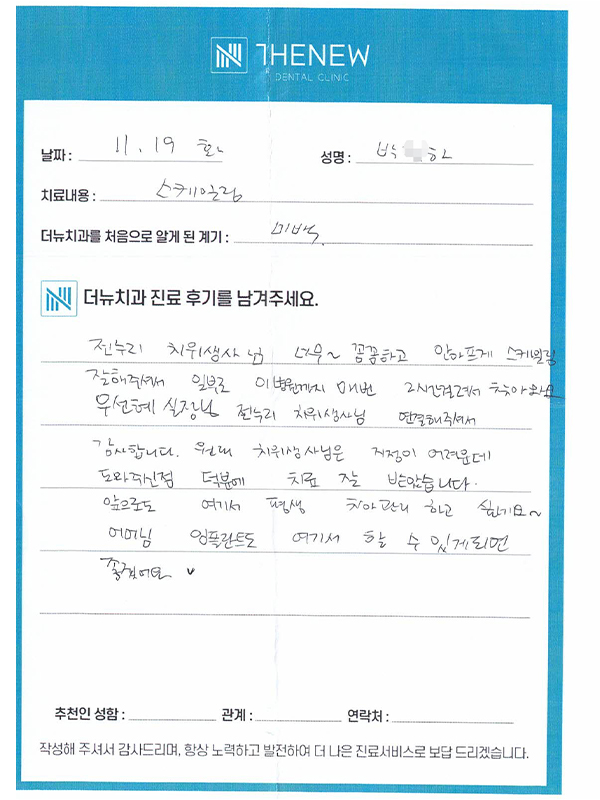 THENEW
DENTAL CLINIC
날짜 : 11. 19 화
성명 : 박 하
치료내용 : 스케일링
더뉴치과를 처음으로 알게 된 계기 : 미백
더뉴치과 진료 후기를 남겨주세요.
전누리 치위생사님 너무~ 꼼꼼하고 안아프게 스케일링
잘해주셔서 일부로 이병원까지 매번 2시간걸려서 찾아와요
우선혜 실장님 전누리 치위생사님 연결해주셔서
감사합니다. 원래 치위생사님은 지정이 어려운데
도와주신점 덕분에 치료 잘 받았습니다.
앞으로도 여기서 평생 치아관리 하고 싶네요~
어머님 임플란트도 여기서 할 수 있게되면
좋겠어요
추천인 성함 : 관계 : 연락처 :
작성해 주셔서 감사드리며, 항상 노력하고 발전하여 더 나은 진료서비스로 보답 드리겠습니다.